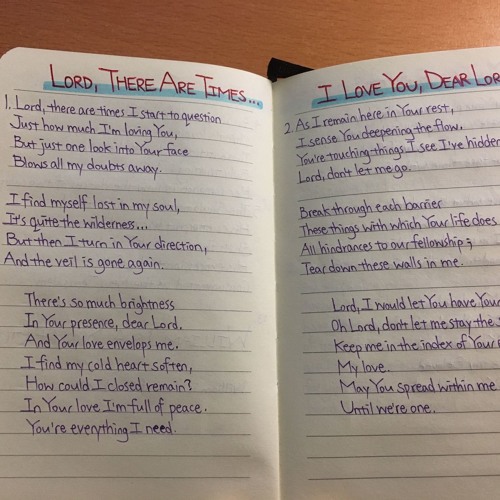 LORD, THERE ARE TIMES...
1. Lord, there are times I start to question
Just how much I'm loving You,
But just one look into Your face
Blows all my doubts away.
I find myself lost in my soul,
It's quite the wilderness...
But then I turn in Your direction,
And the veil is gone again.
There's so much brightness
In Your presence, dear Lord.
And Your love envelops me.
I find my cold heart soften,
How could I closed remain?
In Your love I'm full of peace.
You're everything I need.
I LOVE YOU, DEAR LOR
2. As I remain here in Your rest,
I sense You deepening the flow.
You're touching things I see I've hidden
Lord, don't let me go.
Break through each barrier
These things with which Your life does
All hindrances to our fellowship;
Tear down these walls in me.
Lord, I would let You have Your
Oh Lord, don't let me stay the
Keep me in the index of Your
My love.
May You spread within me
Until we're one.